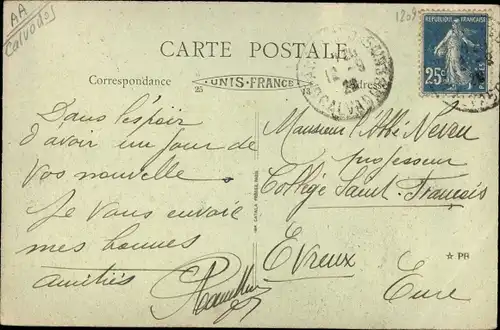 AA
Calvados
1209
CARTE POSTALE
Correspondance
UNIS-FRANCE
25
Adresse
RÉPUBLIQUE FRANÇAISE
25c
CALVADOS
Dans l'espoir
d'avoir un jour de
vos nouvelle
Je Vous envoie
mes bonnes
amitiés
Monsieur l'Abbé
professeur
Collège Saint-François
Evreux
Eure
PB